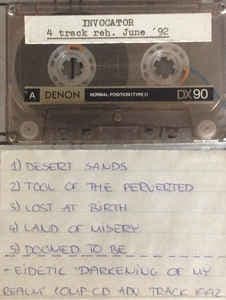 INVOCATOR
4 track reh. June '92
A DENON NORMAL POSITION (TYPE I) DX90
1) DESERT SANDS
2) TOOL OF THE PERVERTED
3) LOST AT BIRTH
4) LAND OF MISERY
5) DOOMED TO BE
- EIDETIC "DARKENING OF MY
REALM" COMP-CD ADV TRACK 1992